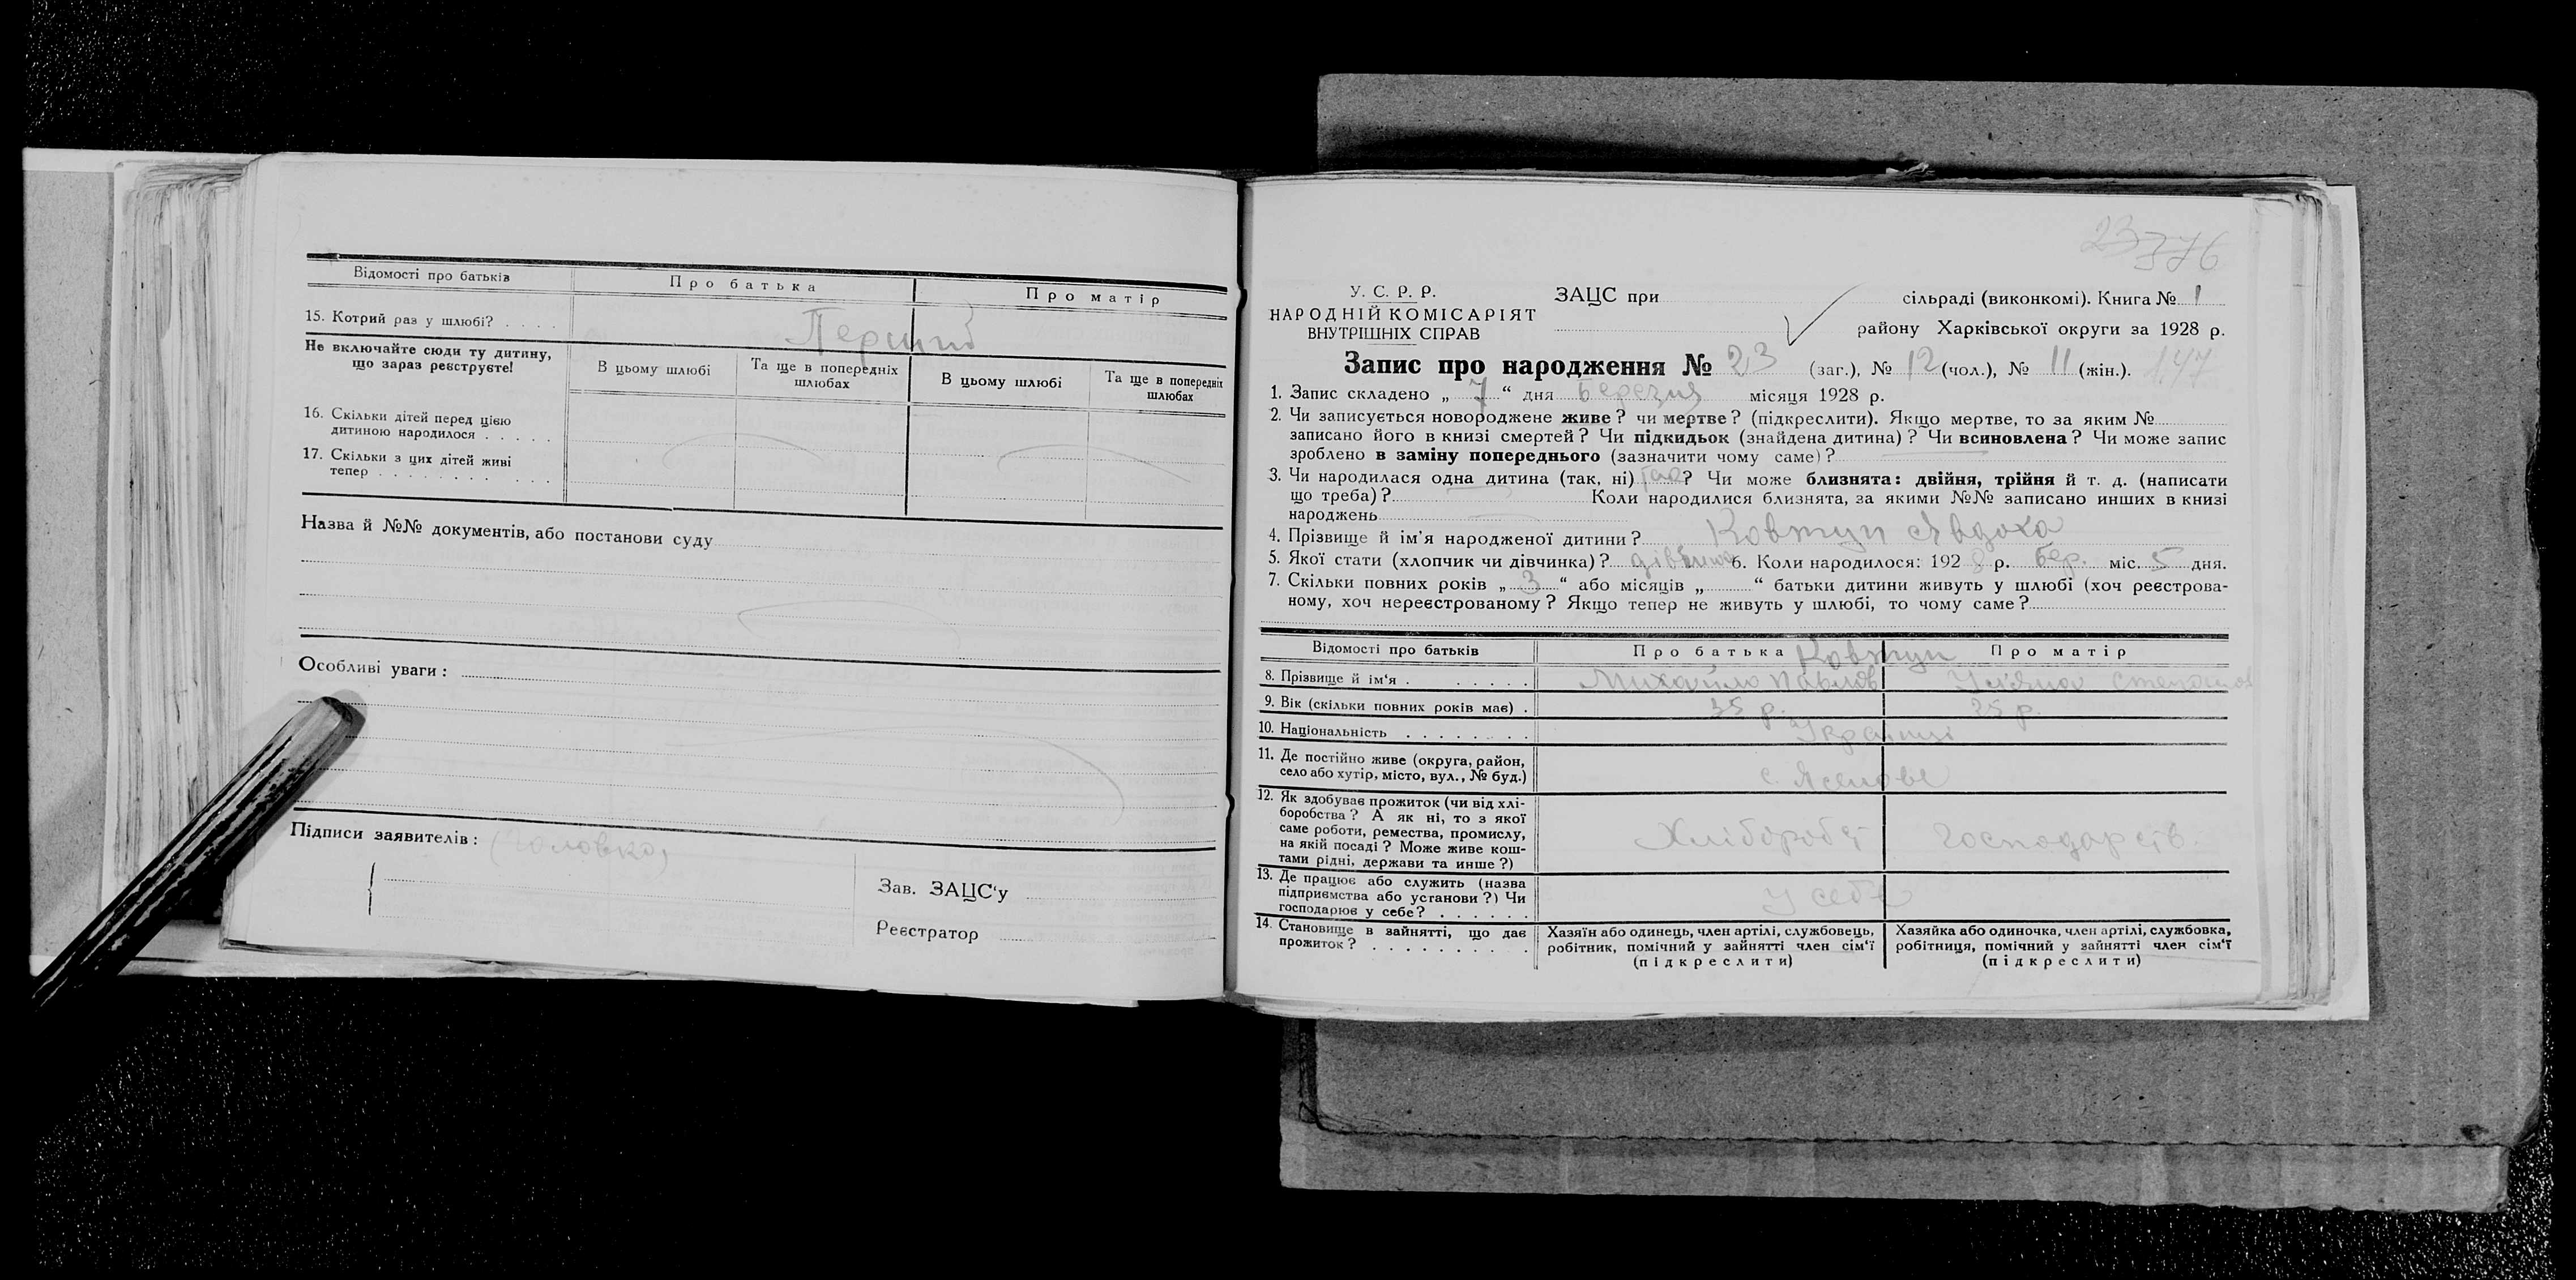 Відомості про батьків Про батька Про матір
15. Котрий раз у шлюбі? . . . . Перший
Не включайте сюди ту дитину,
що зараз реєструєте!
В цьому шлюбі Та ще в попередніх шлюбах В цьому шлюбі Та ще в попередніх шлюбах
16. Скільки дітей перед цією
дитиною народилося . . . . .
17. Скільки з цих дітей живі
тепер . . . . . . . . . . .
Назва й №№ документів, або постанови суду
Особливі уваги :
Підписи заявителів : (Головко)
Зав. ЗАЦС'у
Реєстратор
23 376
У. С. Р. Р.
НАРОДНІЙ КОМІСАРІЯТ
ВНУТРІШНІХ СПРАВ
ЗАЦС при сільраді (виконкомі). Книга № 1
району Харківської округи за 1928 р.
Запис про народження № 23 (заг.), № 12 (чол.), № 11 (жін.). 147
1. Запис складено „ 7 “ дня березня місяця 1928 р.
2. Чи записується новороджене живе? чи мертве? (підкреслити). Якщо мертве, то за яким №
записано його в книзі смертей? Чи підкидьок (знайдена дитина)? Чи всиновлена? Чи може запис
зроблено в заміну попереднього (зазначити чому саме)?
3. Чи народилася одна дитина (так, ні) так? Чи може близнята: двійня, трійня й т. д. (написати
що треба)? Коли народилися близнята, за якими №№ записано инших в книзі
народжень
4. Прізвище й ім'я народженої дитини? Ковтун Явдоха
5. Якої стати (хлопчик чи дівчинка)? дівчина 6. Коли народилося: 192 8 р. бер. міс. 5 дня.
7. Скільки повних років „ 3 “ або місяців „ “ батьки дитини живуть у шлюбі (хоч реєстрова-
ному, хоч нереєстрованому? Якщо тепер не живуть у шлюбі, то чому саме?
Відомості про батьків Про батька Ковтун Про матір
8. Прізвище й ім'я . . . . . . Михайло Павлов Уляна Степанов
9. Вік (скільки повних років має) . 35 р. 25 р.
10. Національність . . . . . . . . Українці
11. Де постійно живе (округа, район,
село або хутір, місто, вул., № буд.) с. Ясенове
12. Як здобуває прожиток (чи від хлі-
боробства? А як ні, то з якої
саме роботи, ремества, промислу,
на якій посаді? Може живе кош-
тами рідні, держави та инше?)
Хлібороб господарств.
13. Де працює або служить (назва
підприємства або установи?) Чи
господарює у себе? . . . . . . у себе
14. Становище в зайнятті, що дає
прожиток? . . . . . . . . . .
Хазяїн або одинець, член артілі, службовець,
робітник, помічний у зайнятті член сім'ї
(підкреслити)
Хазяйка або одиночка, член артілі, службовка,
робітниця, помічний у зайнятті член сім'ї
(підкреслити)